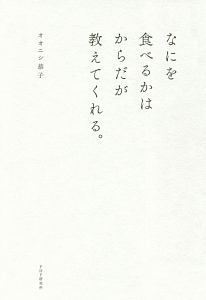 なにを
食べるかは
からだが
教えてくれる。
オオニシ恭子
PHP研究所